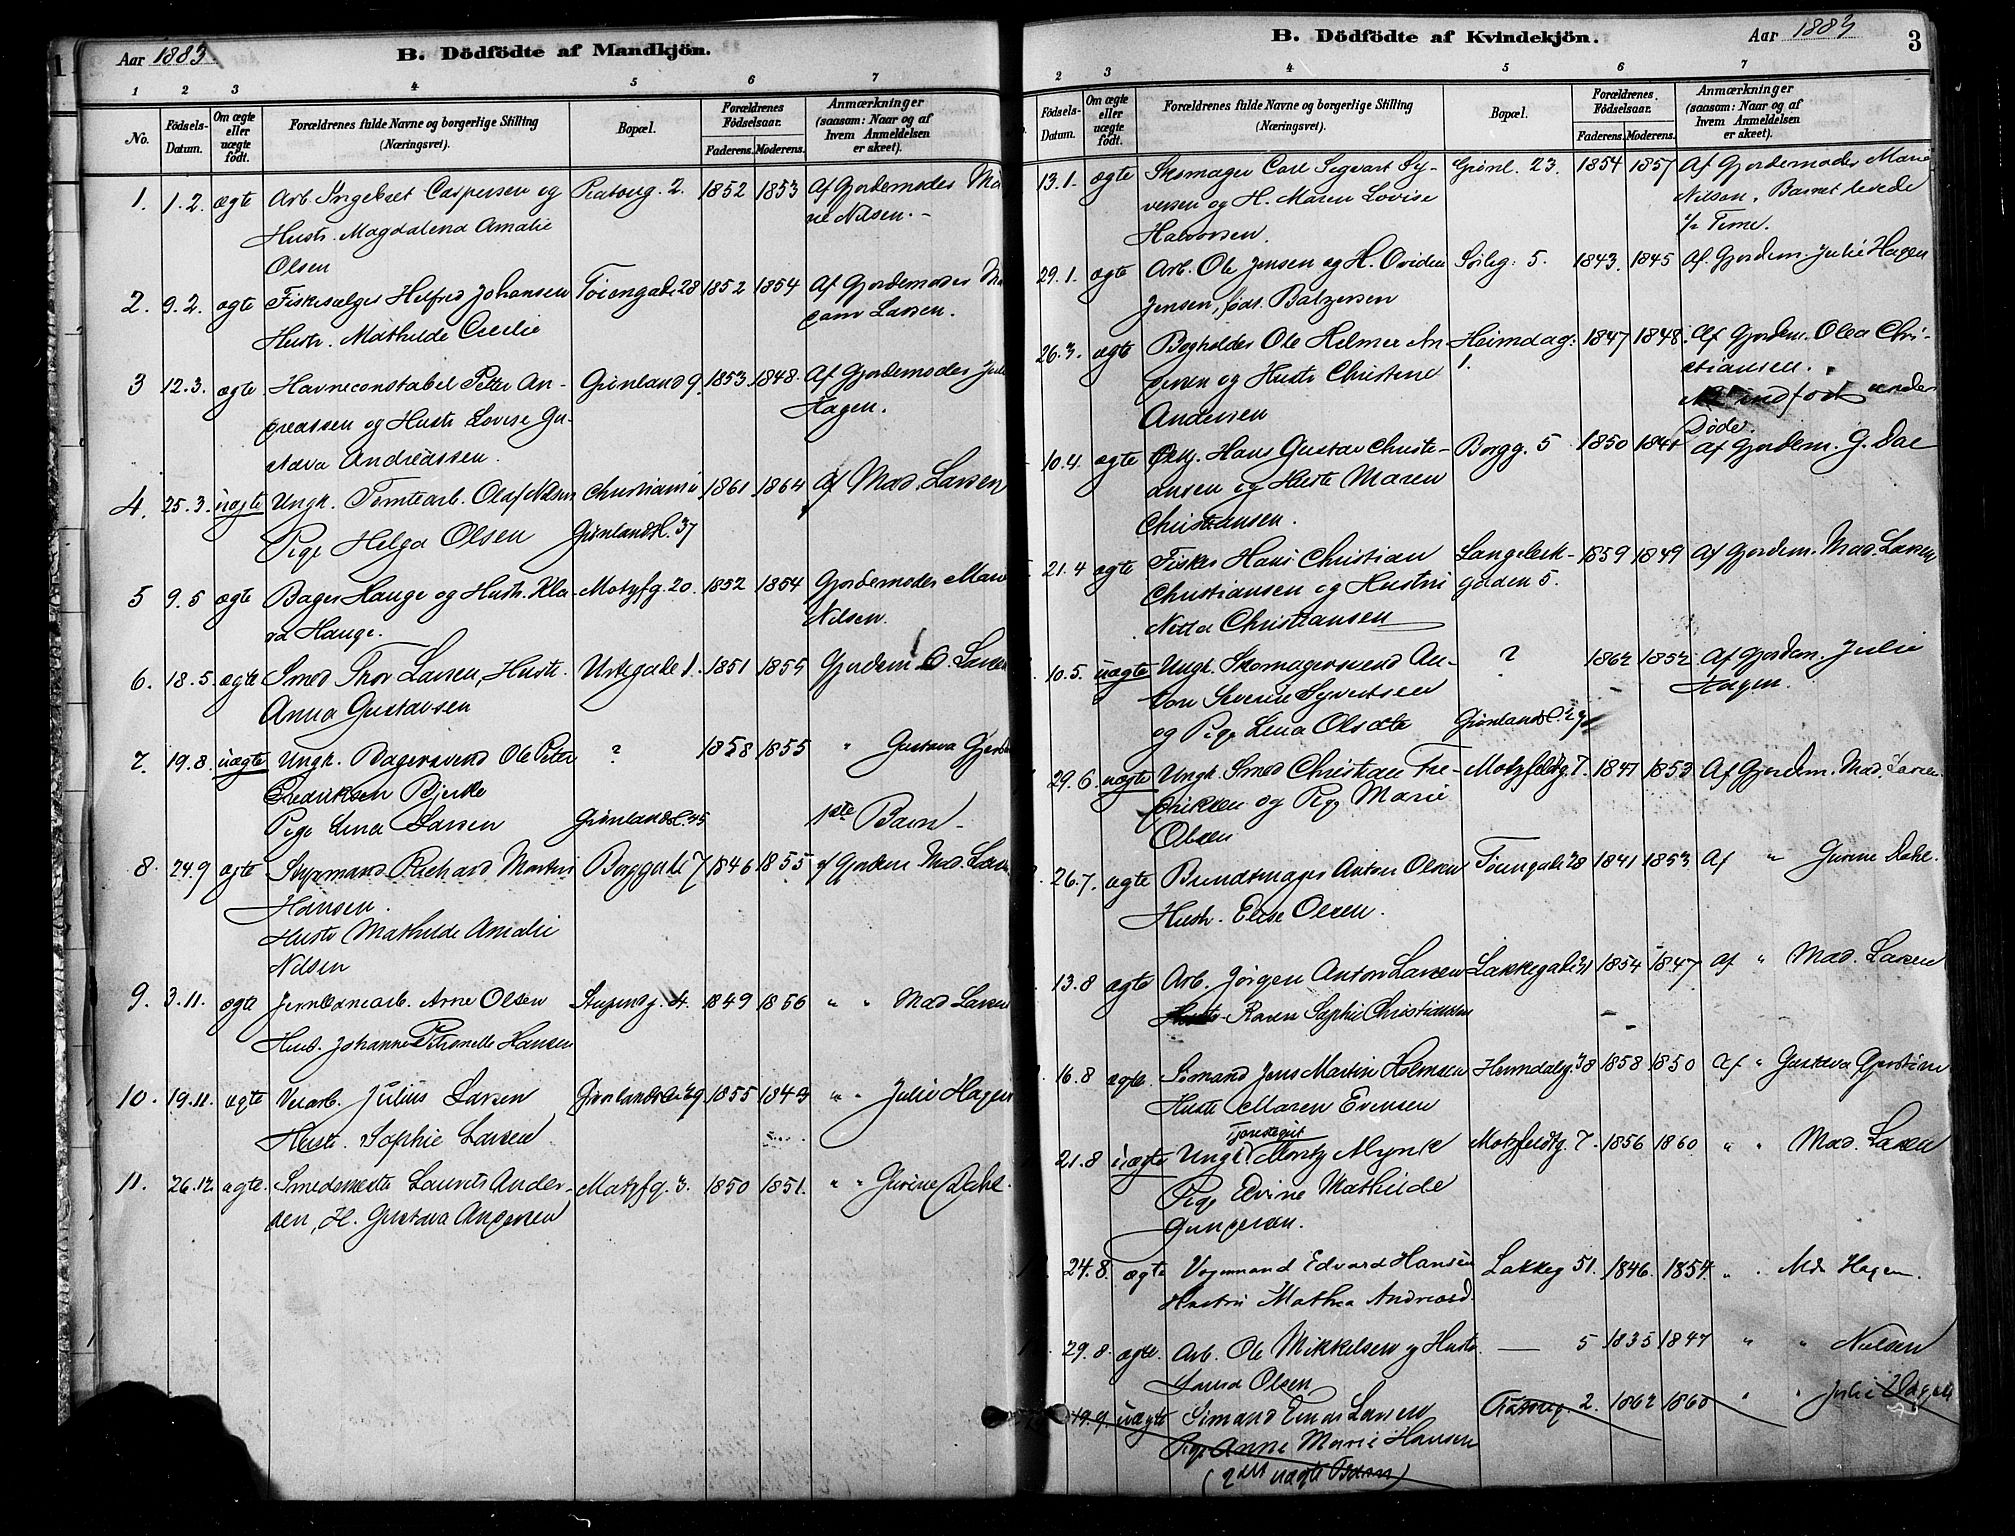 Aar 1883
B. Dödfödte af Mandkjön.
1 2 3 4 5 6 7
No.
Födsels-Datum.
Om ægte eller uægte födt.
Forældrenes fulde Navne og borgerlige Stilling (Næringsvei).
Bopæl.
Forældrenes Födselsaar.
Faderens. Moderens.
Anmærkninger (saasom: Naar og af hvem Anmeldelsen er skeet).
1. 1.2. ægte Arb. Ingebret Caspersen og 2. 1852 1853 Af Gjordemoder
Hustr. Magdalena Amalie Nilsen.-
Olsen
2. 9.2. ægte Fiskesælger Helfred Johansen Töiengade 28 1852 1854 Af Gjordemoder
Hustr. Mathilde Cecilie Larsen.
3 12.3. ægte Havneconstabel Petter An- Grønland 9. 1853 1848. Af Gjordemoder
dreassen og Hustr Lovise Gu- Hagen.
stava Andreassen.
4. 25.3. uægte Ungk. Tomtearb. Olaf Nilsen Christiania 1861 1864 Af Mad. Larsen
Pige Helga Olsen Grønlandsl. 37
5 9.5 ægte Bager Hauge og Hustr. Kla- Motzfg. 20. 1852 1854 Gjordemoder
ra Hauge. Nilsen.
6. 18.5. ægte Smed Thor Larsen, Hustr. Urtegade 1. 1851 1859 Gjordem. Larsen
Anna Gustavsen
7. 19.8. uægte Ungk. Bagersvend Ole Peter ? 1858 1855 " Gustava
Fredriksen Bjerke
Pige Lina Larsen Grønlandsl. 35 1ste Barn -
8. 24.9 ægte Styrmand Richard Martin Borggade 7 1846 1855 af Gjordem Mad. Larsen
Hansen.
Hustr Mathilde Amalie
Nilsen
9. 3.11. ægte Jernbanearb. Arne Olsen 4. 1849 1856 " " Mad Larsen
Hust. Johanne Petronelle Hansen
10. 19.11. ægte Julius Larsen Grønlandsl. 29. 1855 1849 " " Julie Hagen
Hustr. Sophie Larsen
11. 26.12. ægte. Smedmester Laurits Ander- Motzfg. 3. 1850 1851. " " Gurine Dahl.
sen, H. Gustava Andersen
B. Dödfödte af Kvindekjön. Aar 1883 3
2 3 4 5 6 7
Födsels-Datum.
Om ægte eller uægte födt.
Forældrenes fulde Navne og borgerlige Stilling (Næringsvei).
Bopæl.
Forældrenes Födselsaar.
Faderens. Moderens.
Anmærkninger (saasom: Naar og af hvem Anmeldelsen er skeet).
13.1. ægte Skomager Carl Sigvart Sy- Grönl. 23. 1854 1857 Af Gjordemoder Marie
versen og H. Maren Lovise Nilsen. Barnet levede
Halvorsen. ½ Time.
29.1. ægte Arb. Ole Jensen og H. Ovidea Sörlig. 5. 1843. 1845 Af Gjordem. Julie Hagen
Jensen, föd. Balzersen
26.3. ægte Bogholder Ole Helmer An- Heimdag. 1847 1848. Af Gjordem. Olea Chri-
dersen og Hustr Christine 1. stiansen.
Andersen indfört under
Döde.
10.4. ægte Hans Gustav Christi- Borgg. 5 1850 Af Gjordem. G. Dal
ansen og Hustr Maren
Christiansen.
21.4 ægte Fisker Hans Christian Langeleik- 1859 1849 Af Gjordem. Mad. Larsen
Christiansen og Hustru gaden 5.
Netta Christiansen
10.5. uægte Ungk. Skomagersvend An- ? 1862 1852 Af Gjordem. Julie
ton Severin Syvertsen Hagen.
og Pige Lina Olsdtr Grønlandsl. 29
29.6. uægte Ungk. Smed Christian Fre- Motzfeldtg. 7. 1847 1853 Af Gjordem. Mad. Larsen
driksen og Pige Marie
Olsen
26.7. ægte Bundtmager Anton Olsen Töiengade 28 1841 1853 Af " Gurine Dahl.
Hustr. Elise Olsen.
13.8 ægte Arb. Jörgen Anton Larsen Lakkegade 31 1854 1847 af " Mad. Larsen
Hustr. Karen Sophie Christiansen
16.8 ægte. Sömand Jens Martin Holmsen Heimdalsg. 38 1858 1850 Af " Gustava
Hustr Maren Evensen
21.8 uægte Ungk. Moritz Mynk Motzfeldtg. 7. 1856 1860 " " Mad. Larsen
Pige Edvine Mathilde
Gundersen.
24.8. ægte Vognmand Edvard Hansen Lakkeg 51. 1846. 1854. " . Hagen.
Hustru Mathea Andreasd.
29.8. ægte. Arb. Ole Mikkelsen og Hustr. — 5 1835 1847 " " Nielsen
Laura Olsen
19.9. uægte Sömand Einar Larsen 2. 1862 1860 " " Julie Hagen
Pige Anne Marie Hansen
(2det uægte Barn)